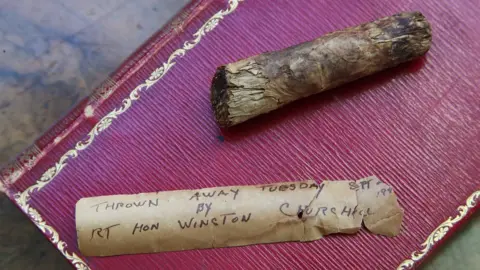 THROWN AWAY TUESDAY
BY
RT HON WINSTON CHURCHILL